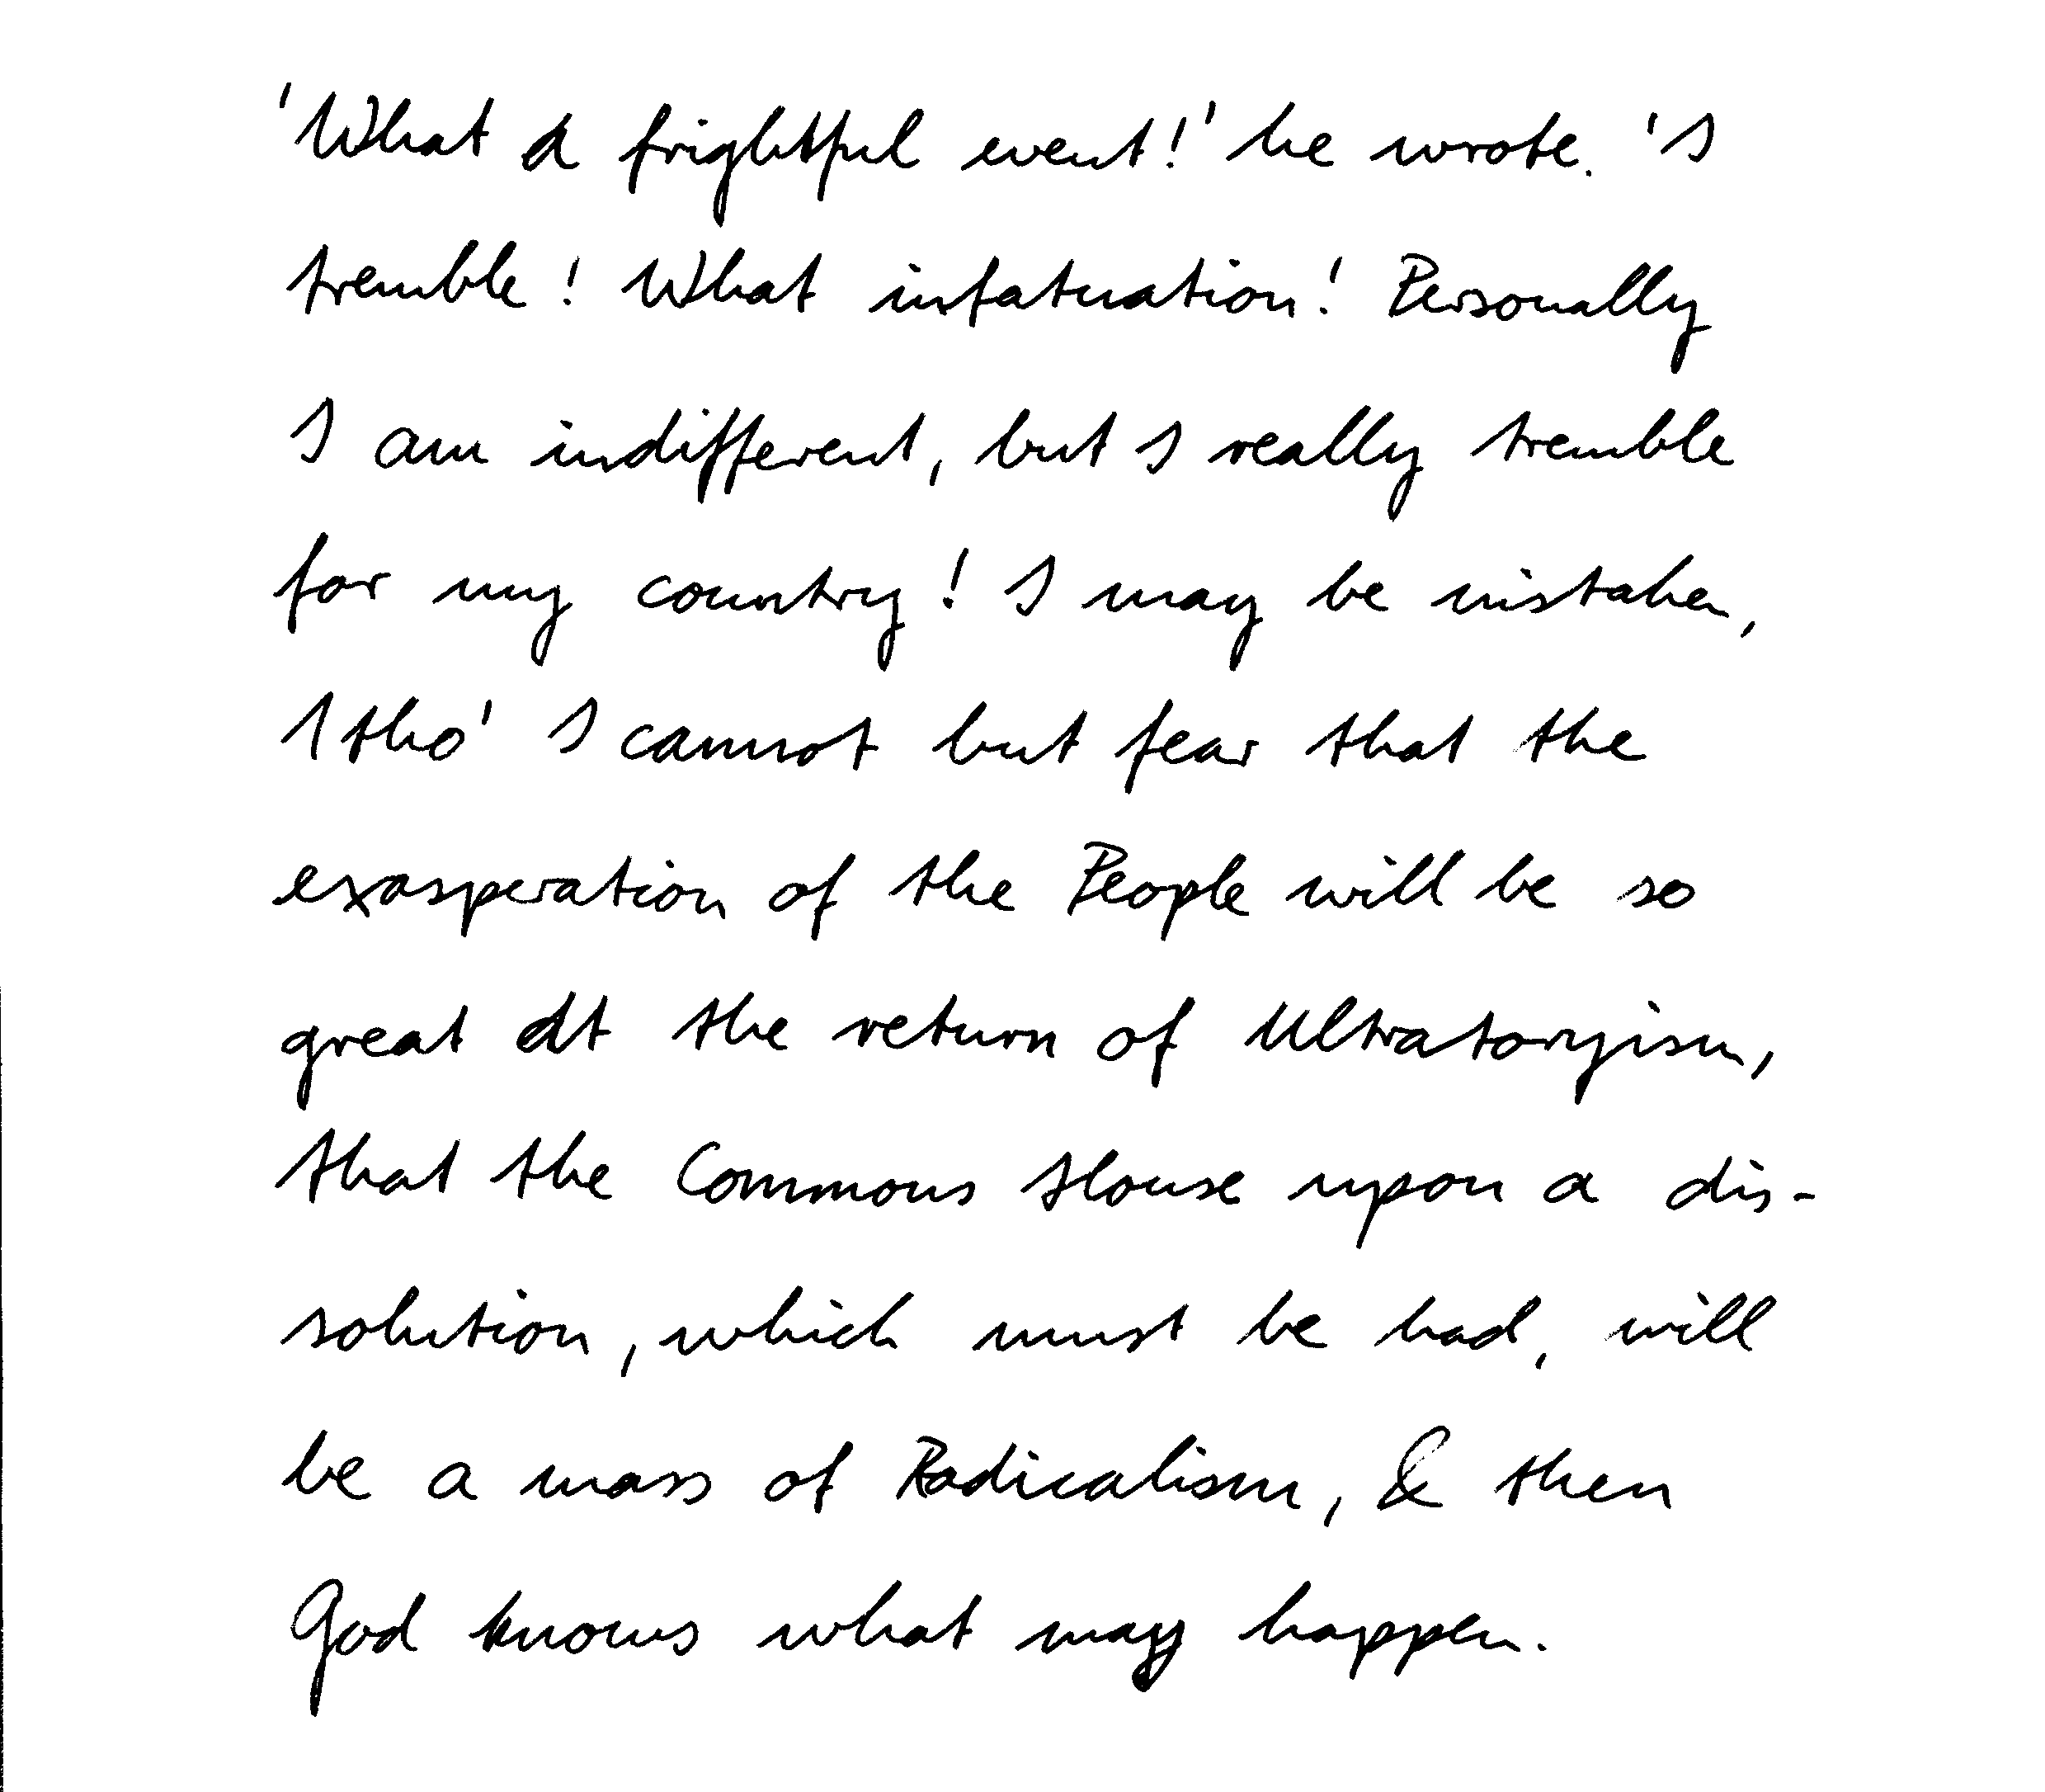 'What a frightful event!' he wrote. 'I
tremble! What infatuation! Personally
I am indifferent, but I really tremble
for my country! I may be mistaken,
1tho' I cannot but fear that the
exasperation of the People will be so
great at the return of Ultratoryism,
that the Commons House upon a dis-
solution, which must be had, will
be a mass of Radicalism, & then
God knows what may happen.